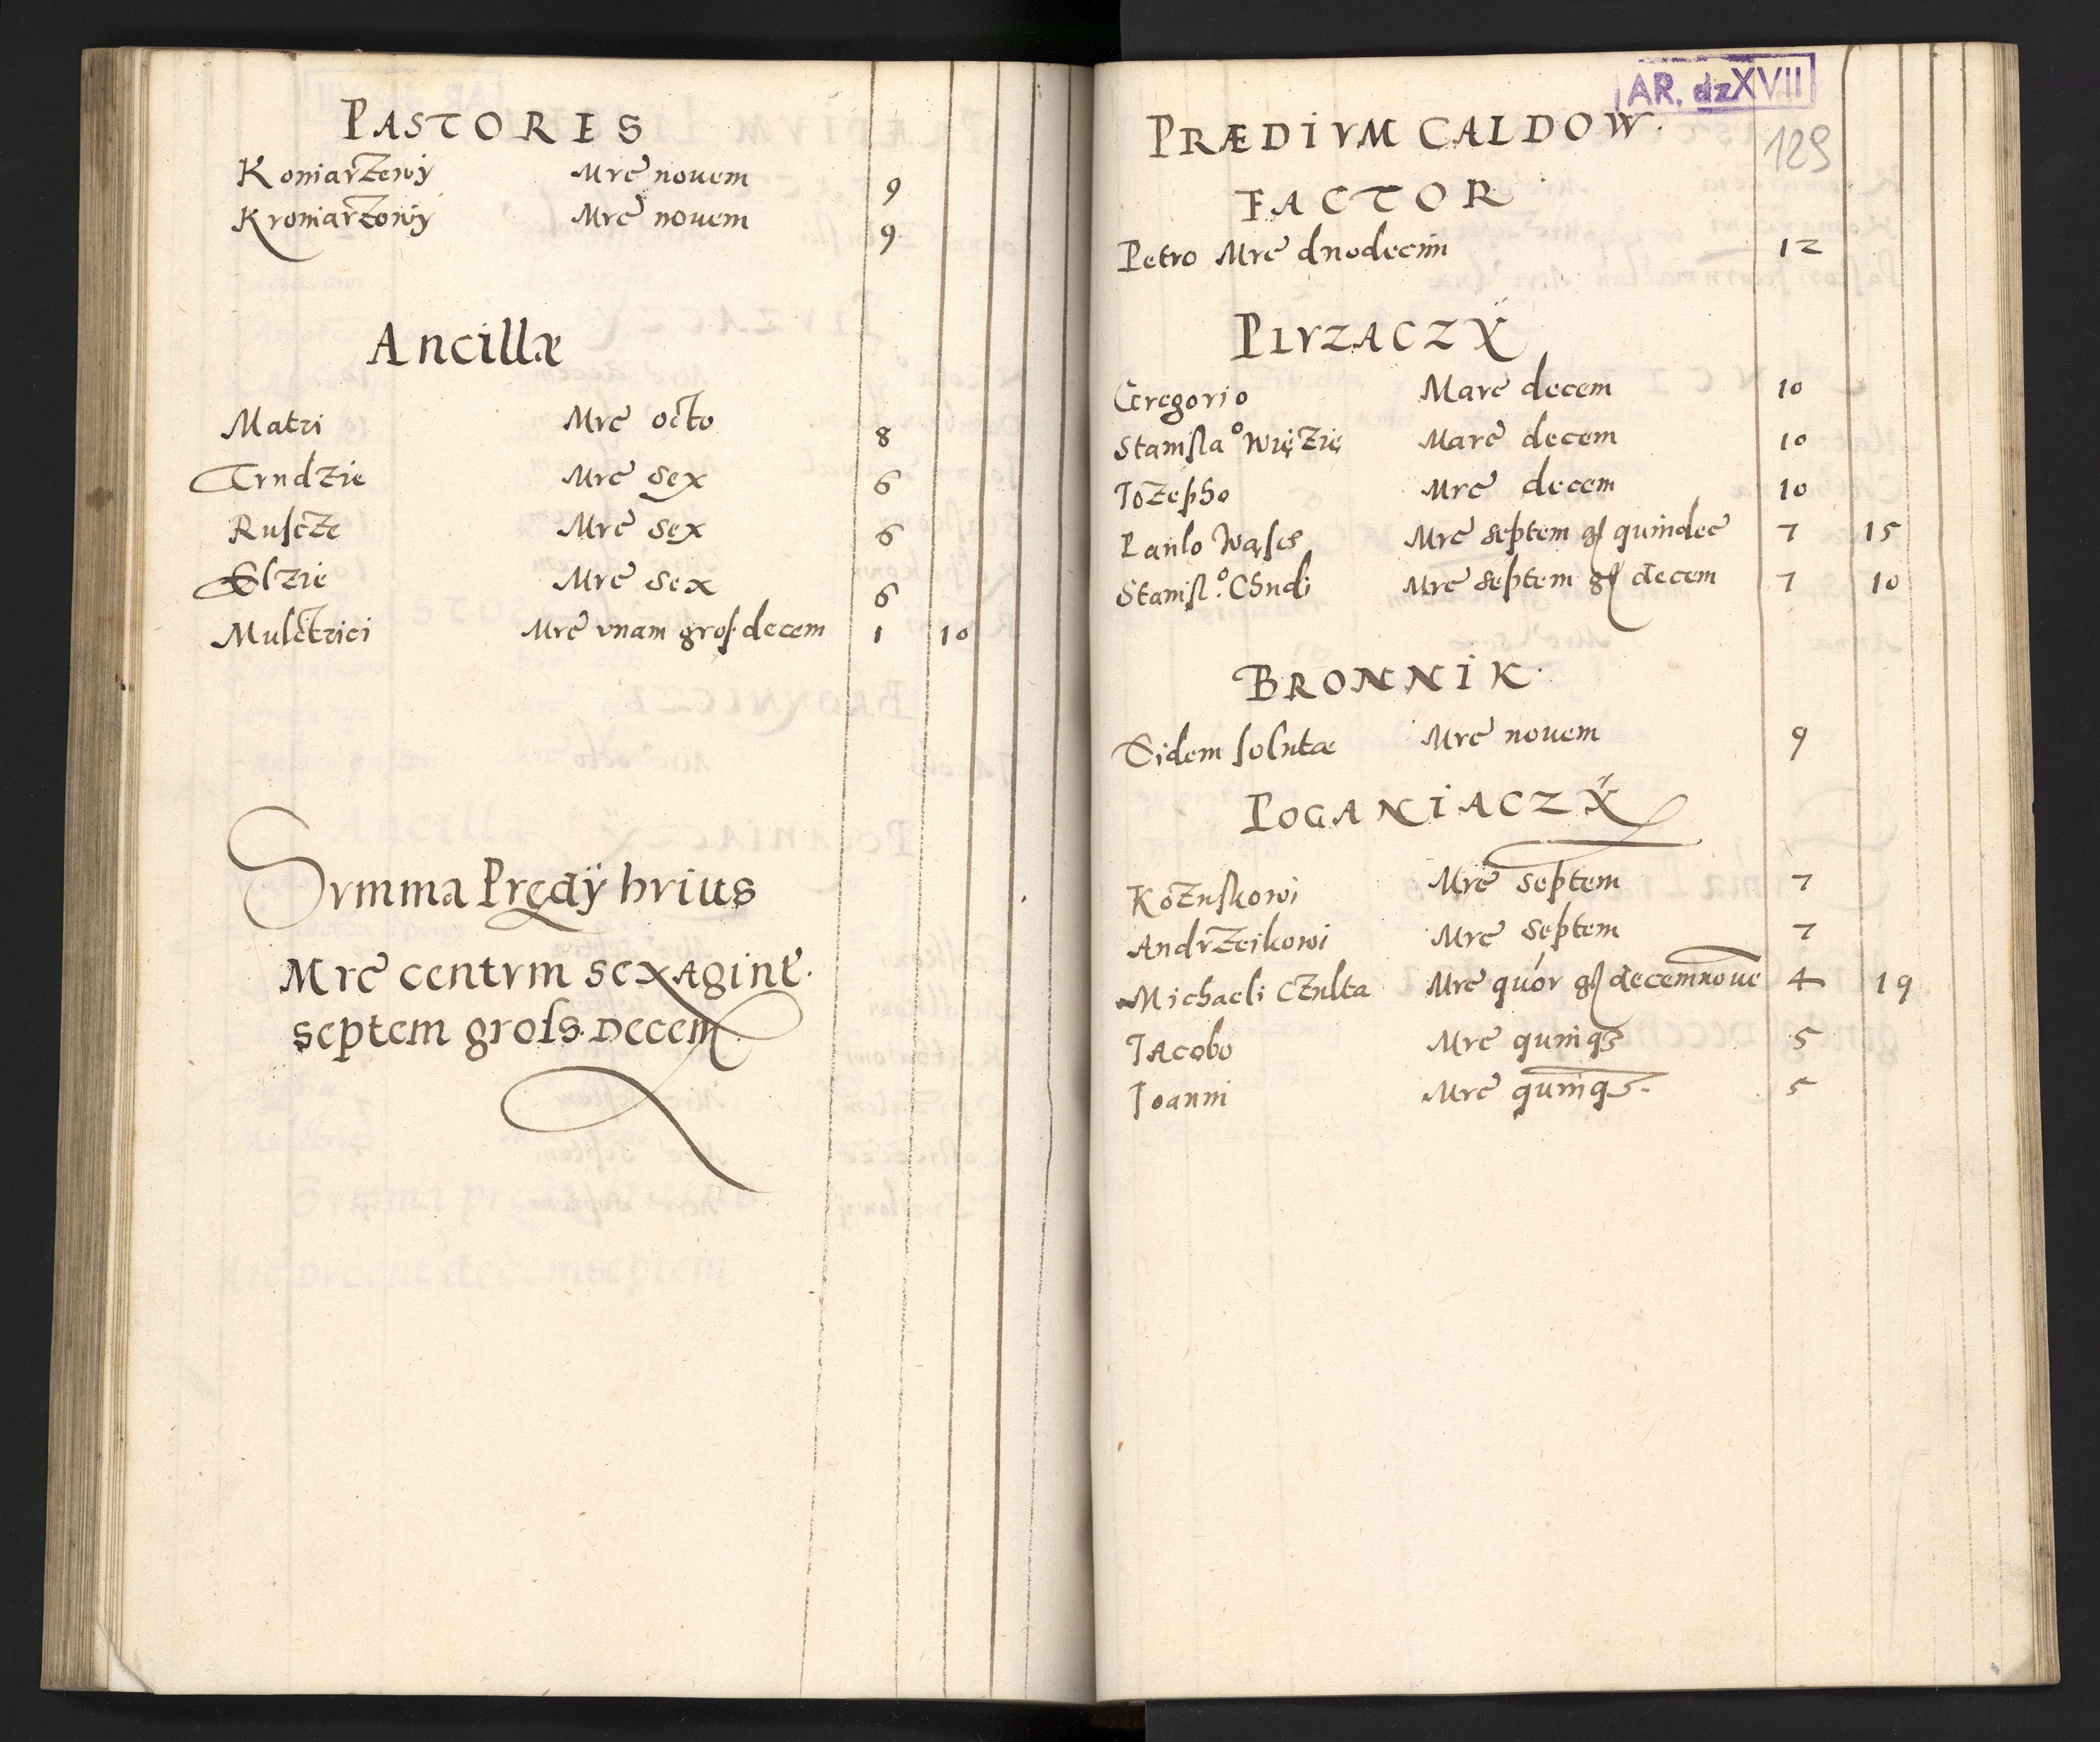 PASTORES
Koniarzewÿ Mrc novem 9
Kroniarzowÿ Mrc novem 9
Ancillæ
Matri Mrc octo 8
Trudzie Mrc sex 6
Ruscze Mrc sex 6
Elzie Mrc sex 6
Mulctrici Mrc vnam gros. decem 1 10
Svmma Prędÿ hvius
Mrc centvm sexagint.
septem grols. Decem
AR. dz XVII
129
PRÆDIVM CALDOW.
FACTOR
Petro Mrc duodecim 12
PLVZACZŸ
Gregorio Marc decem 10
Stanisla° Więzię Marc decem 10
Jozepho Mrc decem 10
Paulo Wąsc Mrc septem gſ quindec 7 15
Stanisl.° Chudi Mrc septem gſ decem 7 10
BRONNIK.
Eidem solutæ Mrc novem 9
POGANIACZŸ
Kozuskowi Mrc septem 7
Andrzeikowi Mrc septem 7
Michaeli Czulta Mrc quór gſ decemnove 4 19
Jacobo Mrc quinqꝫ 5
Joanni Mrc quinqꝫ. 5